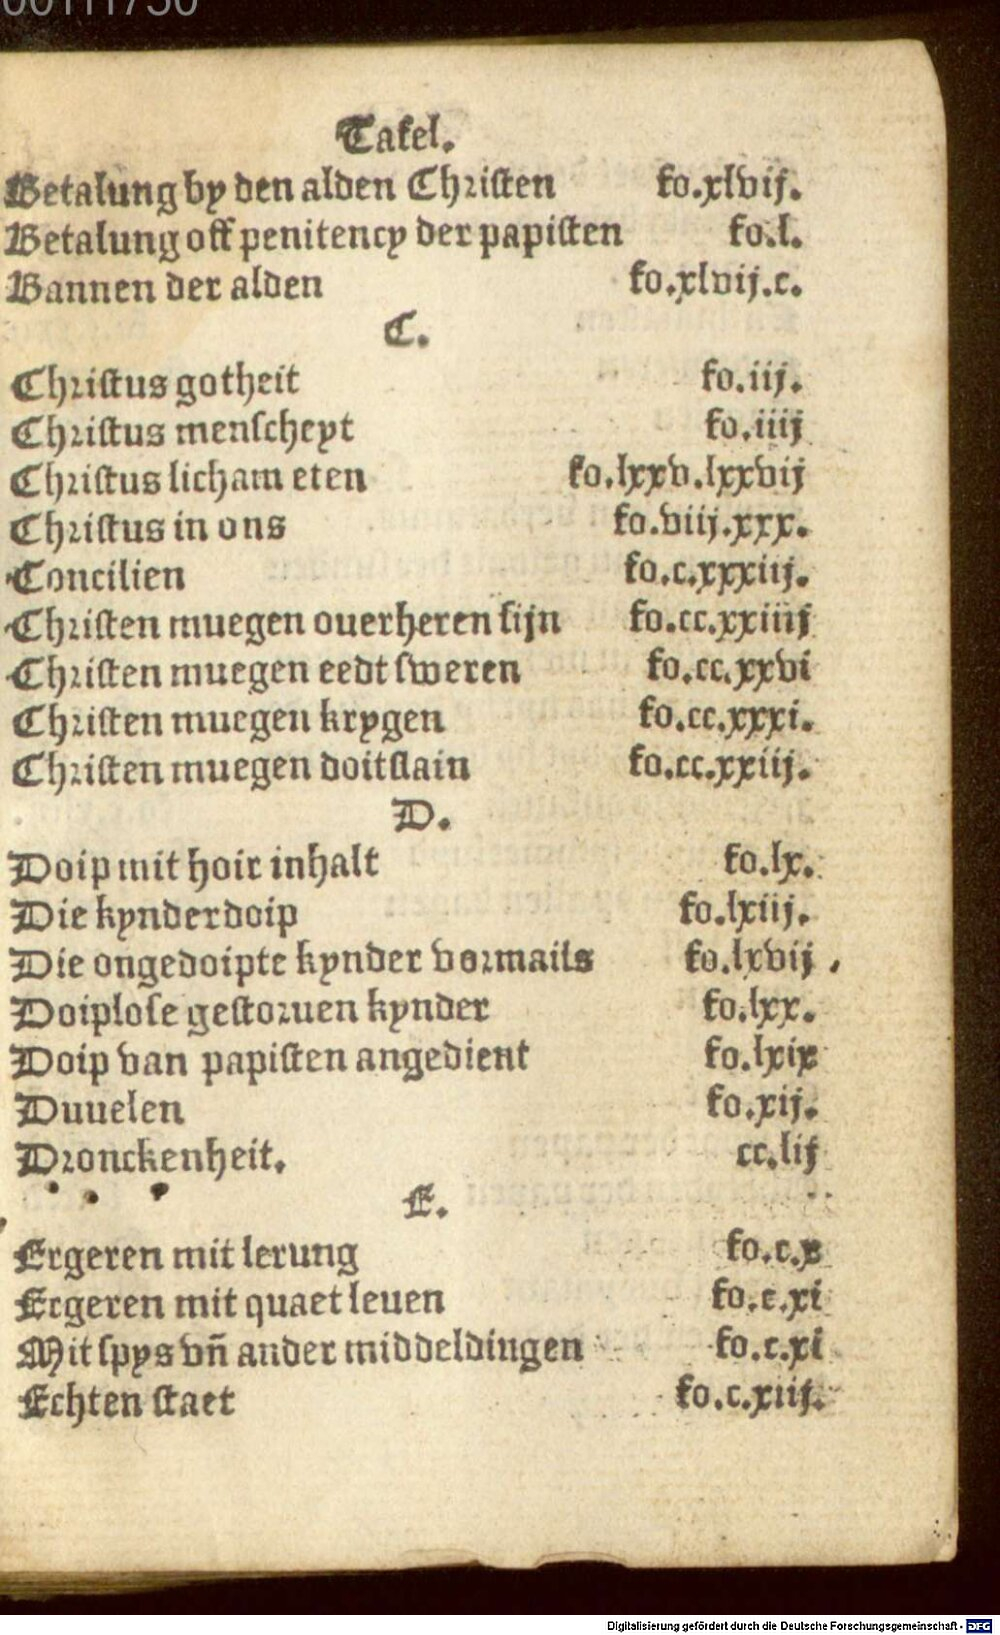 00111730
Tafel.
Betalung by den alden Christen fo.xlvij.
Betalung off penitency der papisten fo.l.
Bannen der alden fo.xlvij.c.
C.
Christus gotheit fo.iij.
Christus menscheyt fo.iiij
Christus licham eten fo.lxxv.lxxvij
Christus in ons fo.viij.xxx.
Concilien fo.c.xxxiij.
Christen muegen ouerheren sijn fo.cc.xxiiij
Christen muegen eedt sweren fo.cc.xxvi
Christen muegen krygen fo.cc.xxxi.
Christen muegen doitslain fo.cc.xxiij.
D.
Doip mit hoir inhalt fo.lx.
Die kynderdoip fo.lxiij.
Die ongedoipte kynder vormails fo.lxvij.
Doiplose gestoruen kynder fo.lxx.
Doip van papisten angedient fo.lxix
Duuelen fo.xij.
Dronckenheit. cc.lij
E.
Ergeren mit lerung fo.c.x
Ergeren mit quaet leuen fo.c.xi
Mit spys vñ ander middeldingen fo.c.xi
Echten staet fo.c.xiij.
Digitalisierung gefördert durch die Deutsche Forschungsgemeinschaft - DFG